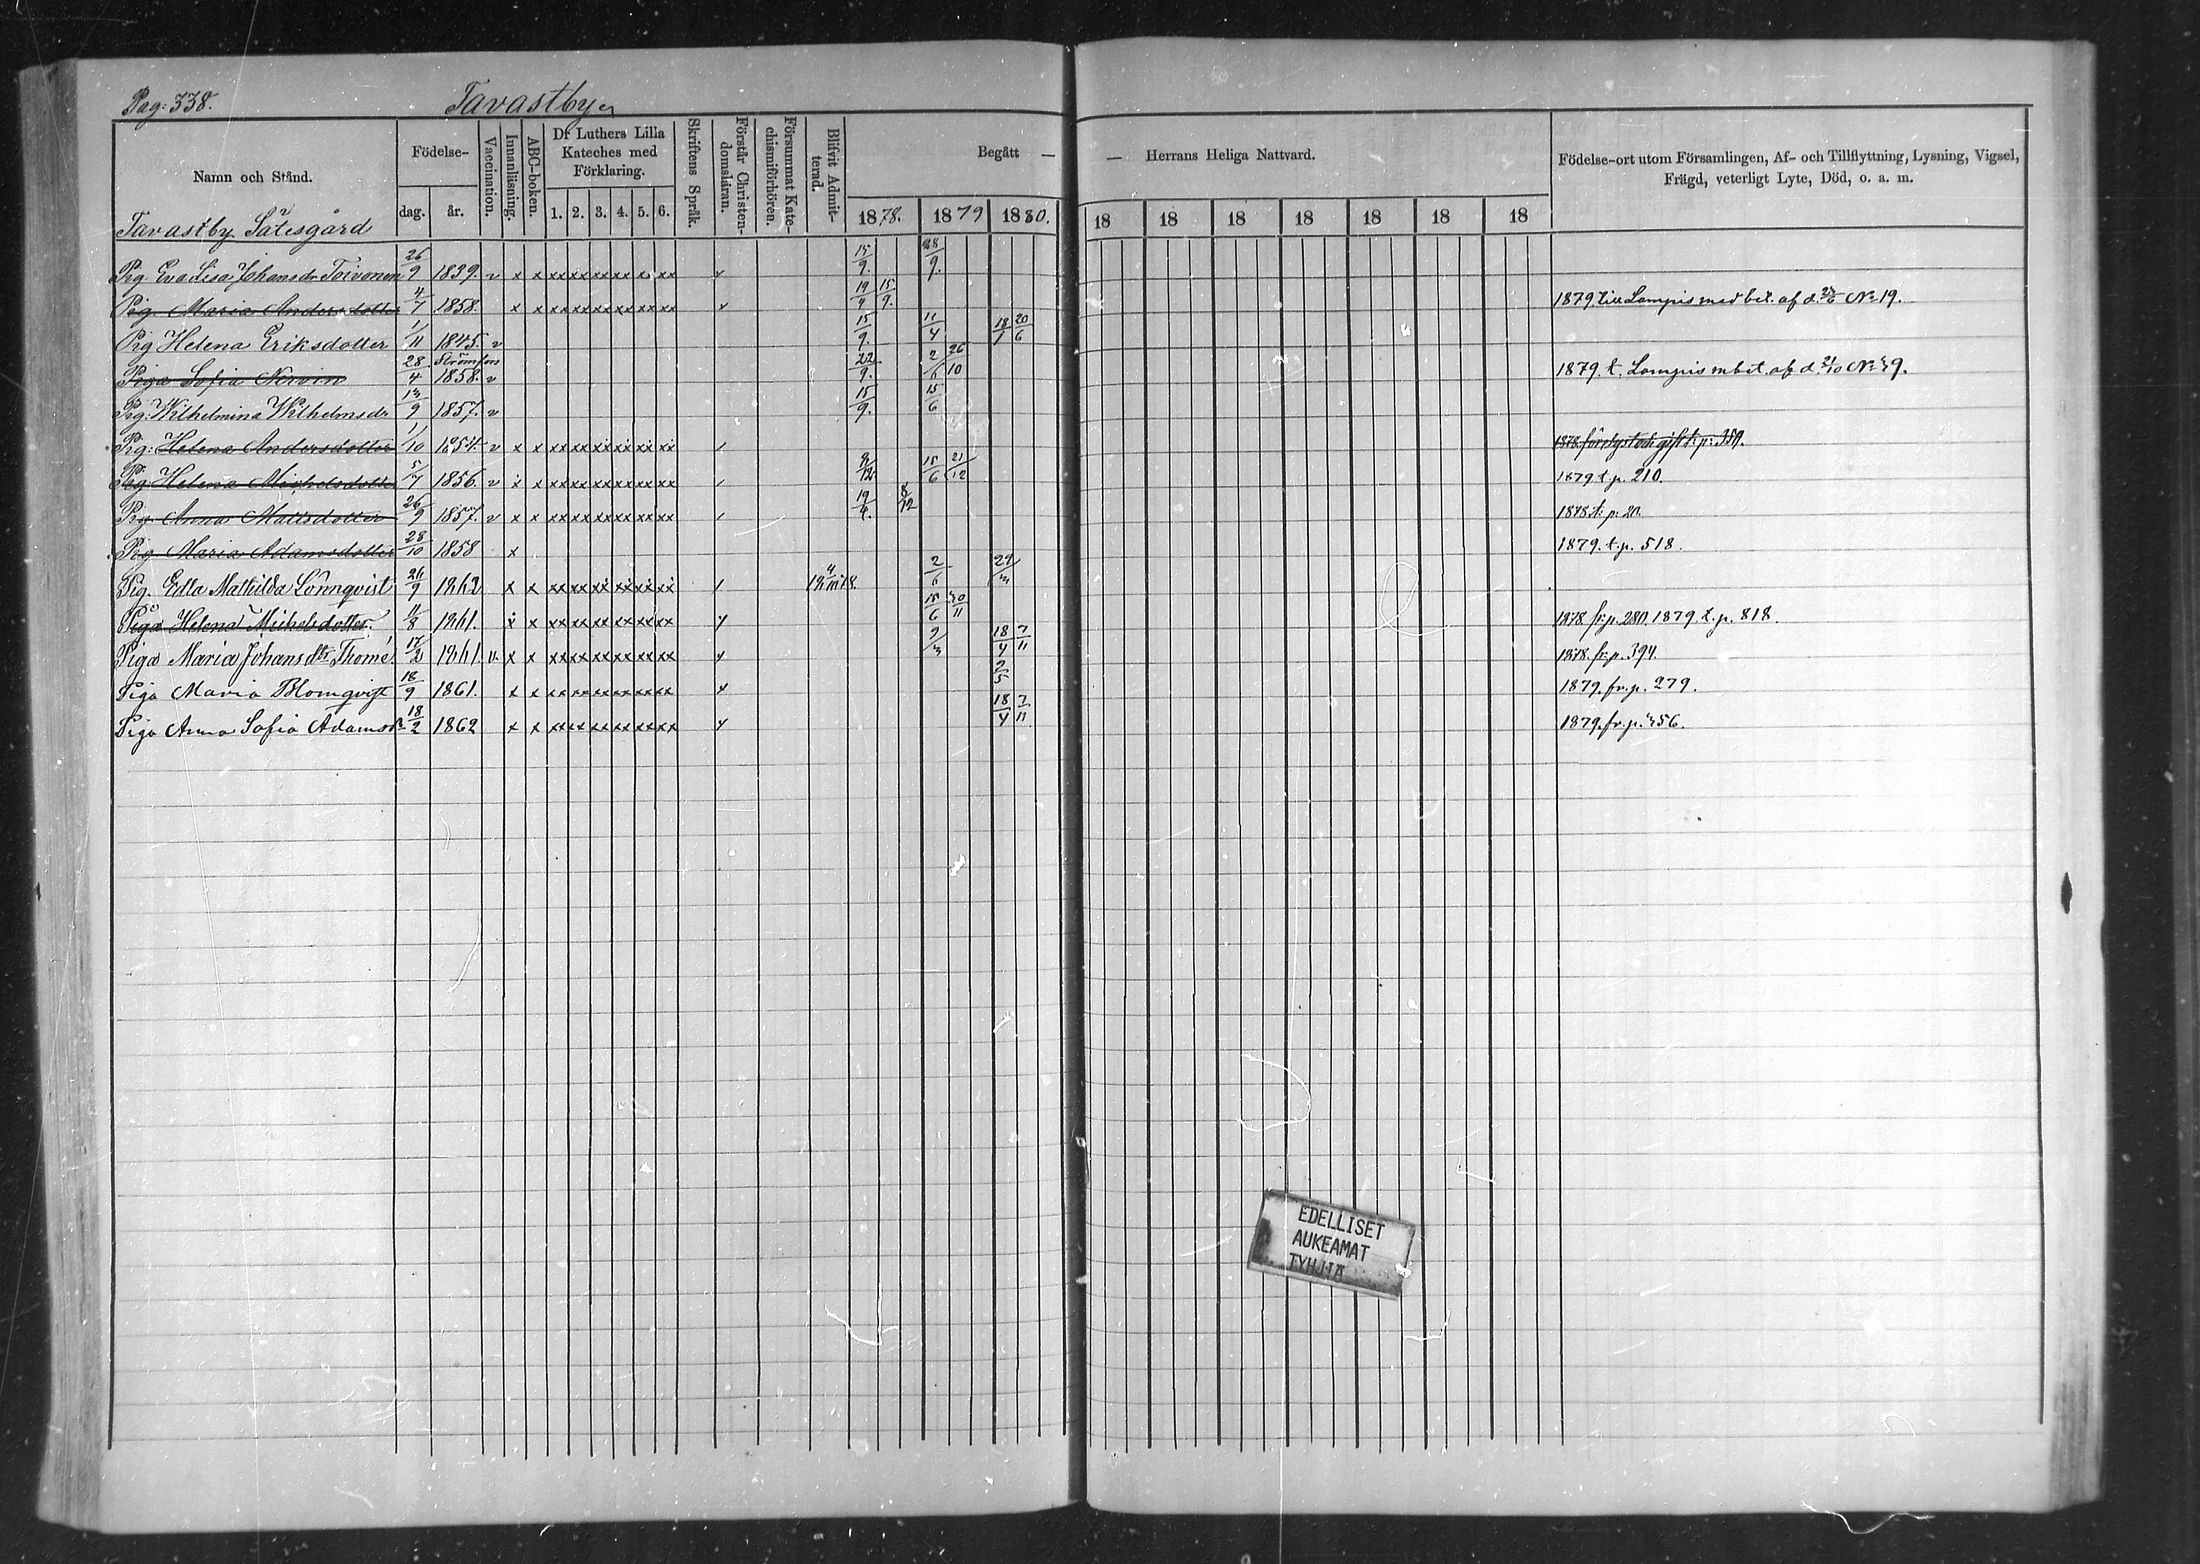 Pag: 338. Tavastby
Namn och Stånd. Födelse- dag. år. Vaccination. Innanläsning. ABC-boken. Dr Luthers Lilla Kateches med Förklaring. 1. 2. 3. 4. 5. 6. Skriftens Språk. Förstår Christendomsläran. Försummat Katechismiförhören. Blifvit Admitterad. Begått — — Herrans Heliga Nattvard. Födelse-ort utom Församlingen, Af- och Tillflyttning, Lysning, Vigsel, Frägd, veterligt Lyte, Död, o. a. m.
1878. 1879 1880. 18 18 18 18 18 18 18
Tavastby Sätesgård
Pig Eva Lisa Johansdr Toivonen 26/9 1839. v x x xx xx xx xx x. xx x 15/9. 28/9.
Pig. Maria Andersdotter 4/7 1858. x x xx xx xx xx xx xx x 19/4 15/9. 1879 till Lampis med bet. af d. No 19.
Pig Helena Eriksdotter 1/11 1845. v 15/9. 11/4 18/1 20/6
Piga Sofia Nervin 28/4 Strömfors 1858. v 22/9. 2/6 26/10 1879. t. Lampis m bet. af d. 21/10 No 49.
Pig: Wilhelmina Wilhelmsdr 13/9 1857. v 15/9. 15/6
Pig: Helena Andersdotter 1/10 1854. v x x xx xx xx xx xx xx / 1878. och gift t. p: 359.
Pig Helena Michelsdotter 5/7 1856. v x x xx xx xx xx xx xx / 8/12 15/6 21/12 1879 t. p. 210.
Pig Anna Mattsdotter 26/9 1857. v x x xx xx xx xx xx xx / 19/4. 8/12 1878. t. p: 20.
Pig Maria Adamsdotter 28/10 1858 x 1879. t. p. 518.
Pig. Edla Mathilda Lönnqvist 24/9 1862 x x xx xx xx xx xx xx / 2/6 29/3
Piga Helena Michelsdotter. 11/8 1861. x x xx xx xx xx xx xx x 15/6 30/11 1878. fr. p. 280. 1879. t. p. 818.
Piga Maria Johansdtr Thomé 17/2 1861. v. x x xx xx xx xx xx xx x 9/3 18/4 7/11 1878. fr. p. 394.
Piga Maria Blomqvist 18/9 1861. x x xx xx xx xx xx xx x 2/5 1879. fr. p. 279.
Piga Anna Sofia Adamsdr 18/2 1862 x x xx xx xx xx xx xx x 18/4 7/11. 1879. fr. p. 456.
EDELLISET
AUKEAMAT
TYHJIÄ